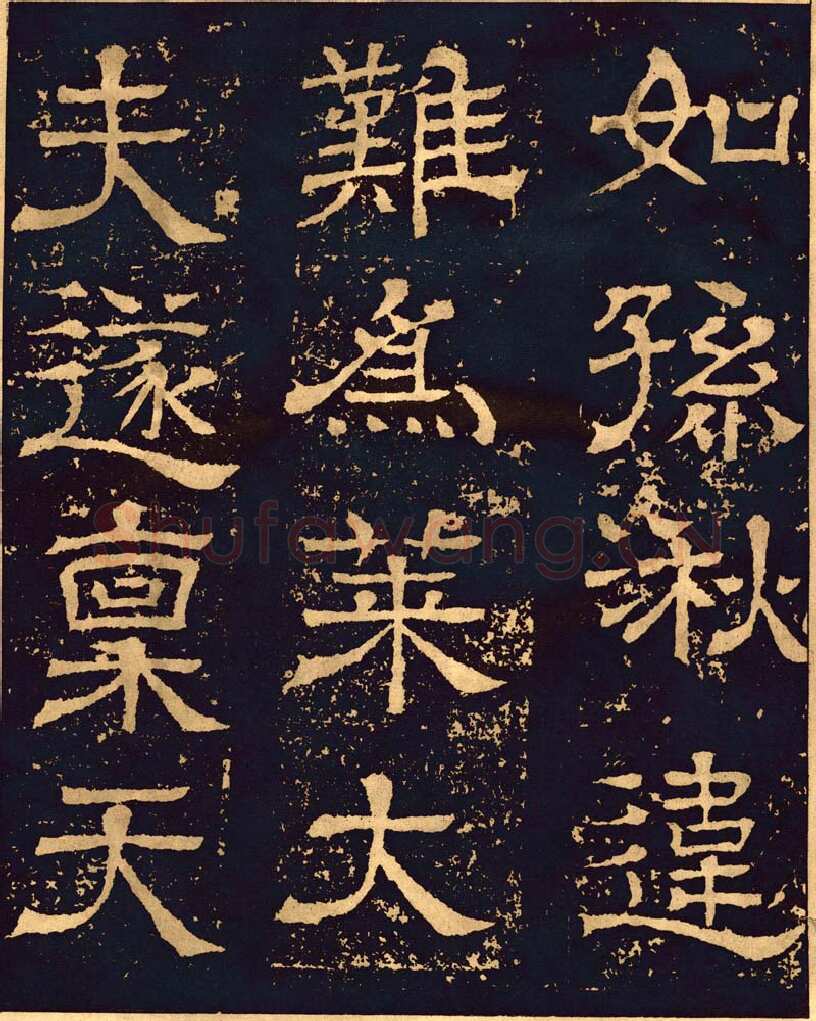 如孫湫違
難爲萊大
夫遂稟天
Shufawang.CN